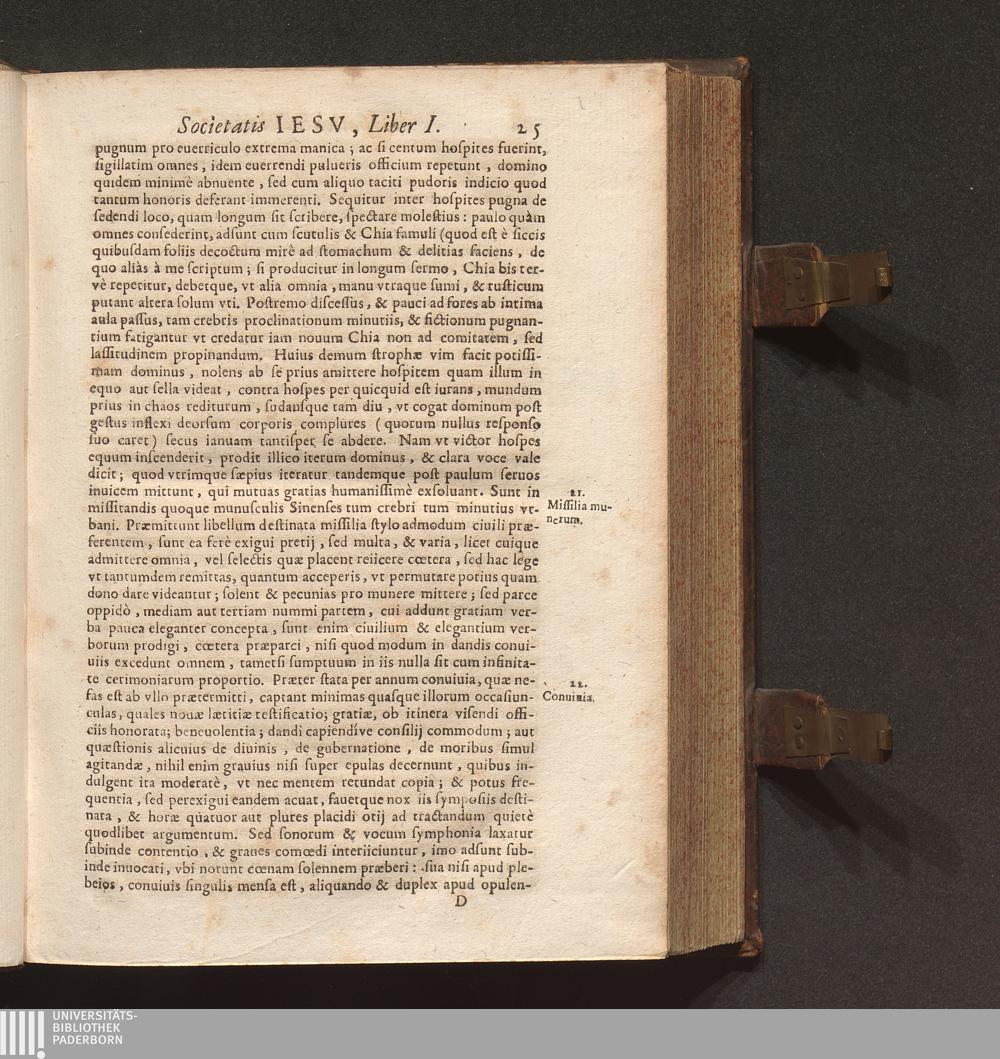 Societatis IESV, Liber I. 25
pugnum pro euerriculo extrema manica; ac ſi centum hoſpites fuerint,
ſigillatim omnes, idem euerrendi pulueris officium repetunt, domino
quidem minimè abnuente, ſed cum aliquo taciti pudoris indicio quod
tantum honoris deferant immerenti. Sequitur inter hoſpites pugna de
ſedendi loco, quam longum ſit ſcribere, ſpectare moleſtius: paulo quàm
omnes conſederint, adſunt cum ſcutulis & Chia famuli (quod eſt è ſiccis
quibuſdam foliis decoctum mirè ad ſtomachum & delitias faciens, de
quo aliàs à me ſcriptum; ſi producitur in longum ſermo, Chia bis ter-
vè repetitur, debetque, vt alia omnia, manu vtraque ſumi, & ruſticum
putant altera ſolum vti. Poſtremo diſceſſus, & pauci ad fores ab intima
aula paſſus, tam crebris proclinationum minutiis, & fictionum pugnan-
tium fatigantur vt credatur iam nouum Chia non ad comitatem, ſed
laſſitudinem propinandum. Huius demum ſtrophæ vim facit potiſſi-
mam dominus, nolens ab ſe prius amittere hoſpitem quam illum in
equo aut ſella videat, contra hoſpes per quicquid eſt iurans, mundum
prius in chaos rediturum, ſudanſque tam diu, vt cogat dominum poſt
geſtus inflexi deorſum corporis complures (quorum nullus reſponſo
ſuo caret) ſecus ianuam tantiſper ſe abdere. Nam vt victor hoſpes
equum inſcenderit, prodit illico iterum dominus, & clara voce vale
dicit; quod vtrimque ſæpius iteratur tandemque poſt paulum ſeruos
inuicem mittunt, qui mutuas gratias humaniſſimè exſoluant. Sunt in
21.
miſſitandis quoque munuſculis Sinenſes tum crebri tum minutius vr-
Miſſilia mu-
nerum.
bani. Præmittunt libellum deſtinata miſſilia ſtylo admodum ciuili præ-
ferentem, ſunt ea ferè exigui pretij, ſed multa, & varia, licet cuique
admittere omnia, vel ſelectis quæ placent reiicere cœtera, ſed hac lege
vt tantumdem remittas, quantum acceperis, vt permutare potius quam
dono dare videantur; ſolent & pecunias pro munere mittere; ſed parce
oppidò, mediam aut tertiam nummi partem, cui addunt gratiam ver-
ba pauca eleganter concepta, ſunt enim ciuilium & elegantium ver-
borum prodigi, cœtera præparci, niſi quod modum in dandis conui-
uiis excedunt omnem, tametſi ſumptuum in iis nulla ſit cum infinita-
te cerimoniarum proportio. Præter ſtata per annum conuiuia, quæ ne-
22.
Conuiuia.
fas eſt ab vllo prætermitti, captant minimas quaſque illorum occaſiun-
culas, quales nouæ lætitiæ teſtificatio; gratiæ, ob itinera viſendi offi-
ciis honorata; beneuolentia; dandi capiendíve conſilij commodum; aut
quæſtionis alicuius de diuinis, de gubernatione, de moribus ſimul
agitandæ, nihil enim grauius niſi ſuper epulas decernunt, quibus in-
dulgent ita moderatè, vt nec mentem retundat copia; & potus fre-
quentia, ſed perexigui eandem acuat, fauetque nox iis ſympoſiis deſti-
nata, & horæ quatuor aut plures placidi otij ad tractandum quietè
quodlibet argumentum. Sed ſonorum & vocum ſymphonia laxatur
ſubinde contentio, & graues comœdi interiiciuntur, imo adſunt ſub-
inde inuocati, vbi norunt cœnam ſolennem præberi: ſua niſi apud ple-
beios, conuiuis ſingulis menſa eſt, aliquando & duplex apud opulen-
D
UNIVERSITÄTS-
BIBLIOTHEK
PADERBORN